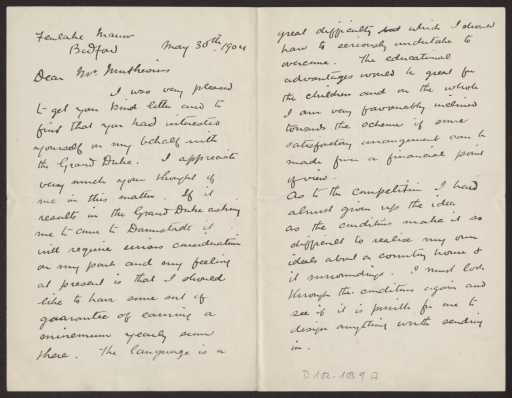 Fenlake Manor
Bedford May 30th, 1904
Dear Mr. Muthesius
I was very pleased
to get your kind letter and to
find that you had interested
yourself on my behalf with
the Grand Duke. I appreciate
very much your thought of
me in this matter. If it
results in the Grand Duke asking
me to come to Darmstadt it
will require serious consideration
on my part and my feeling
at present is that I should
like to have some sort of
guarantee of earning a
minimum yearly sum
there. The language is a
great difficulty which I should
have to seriously undertake to
overcome. The educational
advantages would be great for
the children and on the whole
I am very favourably inclined
towards the scheme if some
satisfactory arrangement can be
made from a financial point
of view.
As to the competition. I had
almost given up the idea
as the conditions make it so
difficult to realise my own
ideals about a country house &
it surroundings. I must look
through the conditions again and
see if it is possible for me to
design anything worth sending
in.
D 102-1389 a